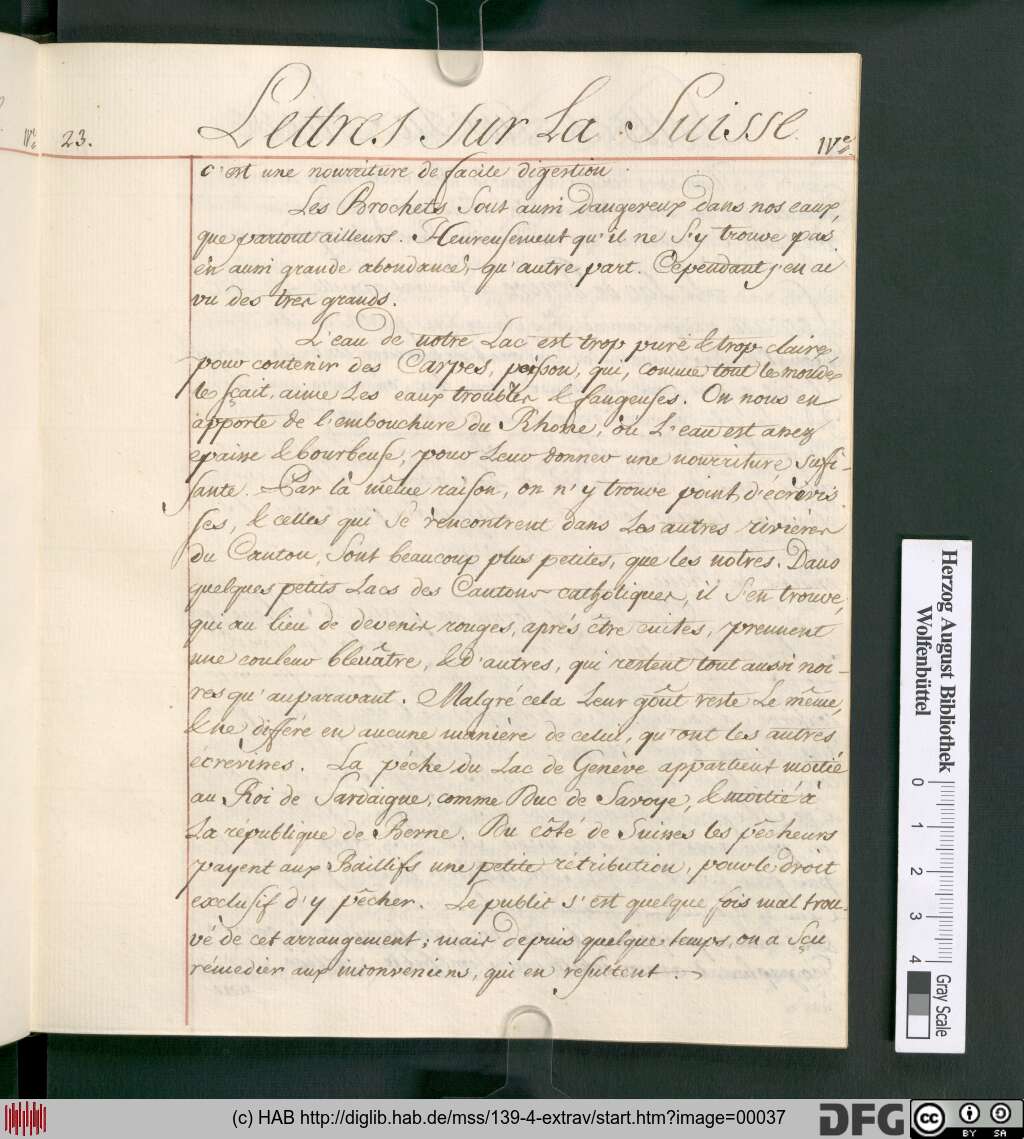 IVe
23.
Lettres sur la Suisse.
IVe
c'est une nourriture de facile digestion.
Les Brochets sont aussi dangereux dans nos eaux,
que partout ailleurs. Heureusement qu'il ne s'y trouve pas
en aussi grande abondance, qu'autre part. Cependant j'en ai
vu des tres grands.
L'eau de notre Lac est trop pure & trop claire
pour contenir des Carpes, poisson, qui, comme tout le monde
le sçait, aime Les eaux troubles & fangeuses. On nous en
apporte de l'embouchure du Rhone, où L'eau est assez
epaisse & bourbeuse, pour Leur donner une nourriture suffi-
sante. Par là même raison, on n'y trouve point d'écrèvis
ses, & celles qui se rencontrent dans Les autres rivières
du Canton, sont beaucoup plus petites, que les notres. Dans
quelques petits Lacs des Cantons catholiques, il s'en trouve,
qui au lieu de devenir rouges, après être cuites, prennent
une couleur bleuâtre, & d'autres, qui restent tout aussi noi-
res qu'auparavant. Malgré cela Leur goût reste Le même,
& ne différe en aucune manière de celui, qu'ont les autres
écrèvisses. La pêche du Lac de Genève appartient moitié
au Roi de Sardaigne, comme Duc de Savoye, & moitié à
La république de Berne. Du côté de Suisses les pêcheurs
payent aux Baillifs une petite rétribution, pour le droit
exclusif d'y pêcher. Le public s'est quelque fois mal trou-
vé de cet arrangement; mais depuis quelque temps, on a sçu
rémedier aux inconveniens, qui en résultent.
Herzog August Bibliothek
Wolfenbüttel
0 1 2 3 4
Gray Scale
(c) HAB http://diglib.hab.de/mss/139-4-extrav/start.htm?image=00037
DFG
cc
BY SA